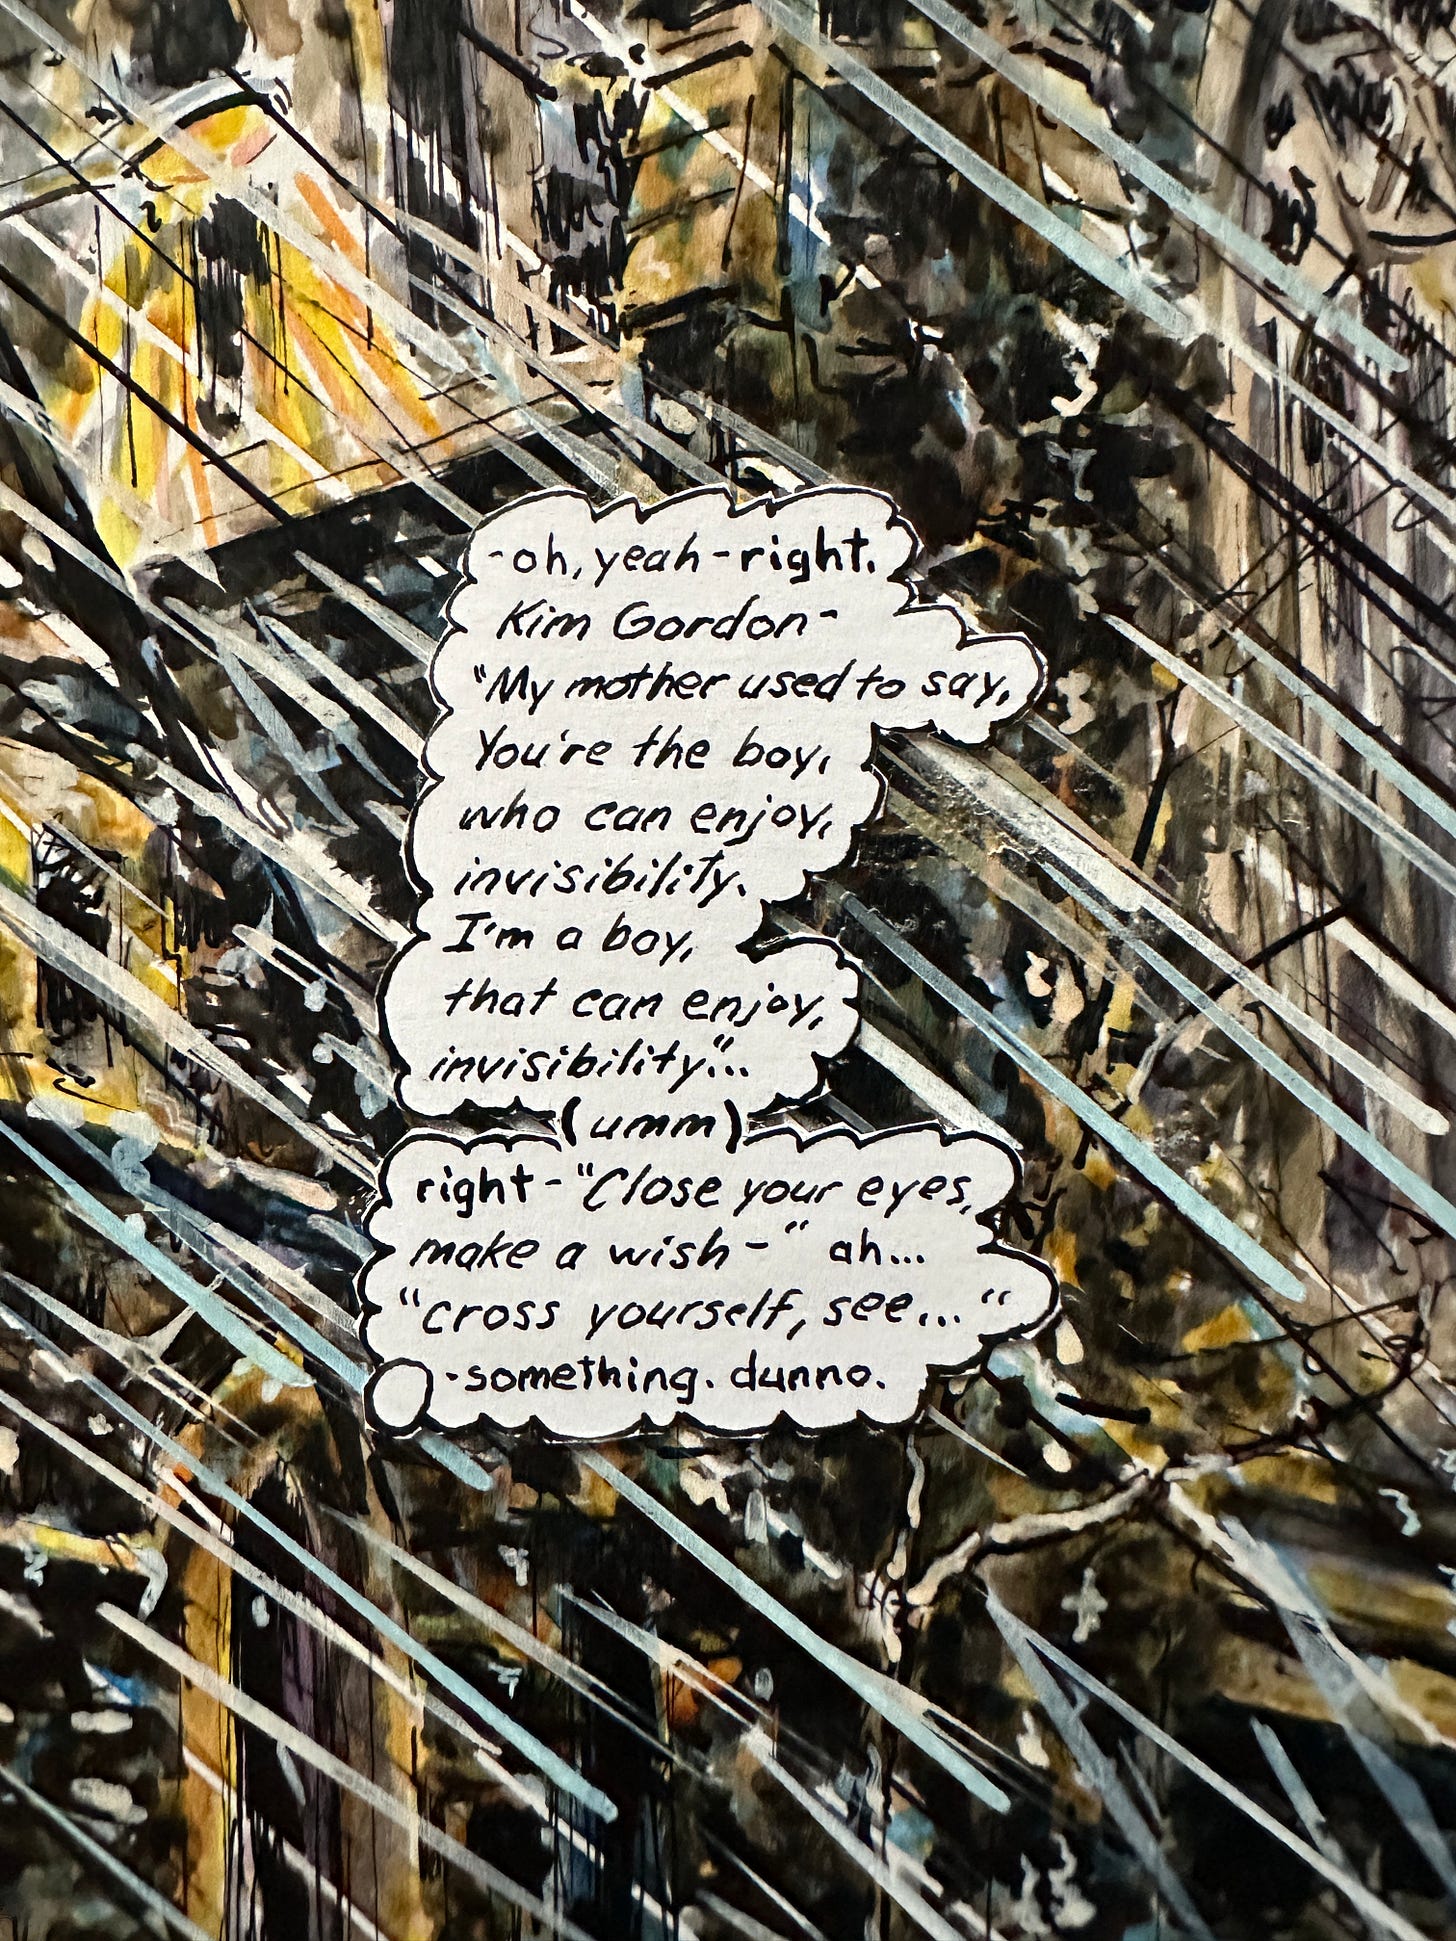 -oh, yeah-right.
Kim Gordon-
"My mother used to say,
You're the boy,
who can enjoy,
invisibility.
I'm a boy,
that can enjoy,
invisibility"...
(umm)
right-"Close your eyes,
make a wish-" ah...
"cross yourself, see..."
-something. dunno.